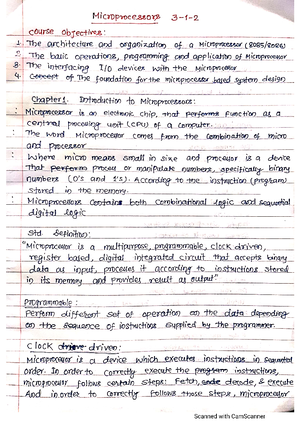 Microprocessors 3-1-2
Course Objectives:
1. The architecture and organization of a Microprocessor (8085/8086)
2. The basic operations, programming and application of Microprocessor
3. The interfacing I/O devices with the Microprocessor
4. Concept of The foundation for the microprocessor based system design
Chapter1. Introduction to Microprocessors:
Microprocessor is an electronic chip, that performs function as a
central processing unit (CPU) of a computer.
The word Microprocessor comes from the combination of micro
and processor
Where micro means small in size and processor is a device
That performs process or manipulate numbers, specifically binary
numbers (0's and 1's). According to the instruction (program)
stored in the memory.
Microprocessors Contains both Combinational logic and sequential
digital logic
Std. Definition:
"Microprocessor is a multipurpose, programmable, clock driven,
register based, digital integrated circuit that accepts binary
data as input, processes it according to instructions stored
in its memory and provides result as output."
Programmable:
Perform different set of operation on the data depending
on the sequence of instructions supplied by the programmer.
Clock driven:
Microprocessor is a device which executes instructions in sequential
order. In order to correctly execute the program instructions,
microprocessor follows certain steps: Fetch, decode, & execute
And in order to correctly follows those steps, microprocessor
Scanned with CamScanner